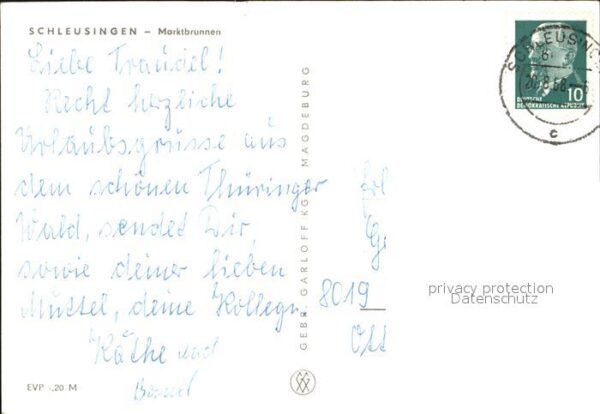 SCHLEUSINGEN – Marktbrunnen
Liebe Traudel!
Recht herzliche
Urlaubsgrüsse aus
dem schönen Thüringer
Wald, sendet Dir,
sowie deiner lieben
Muttel, deine Kollegn.
Käthe und
EVP -,20 M
GEBR. GARLOFF KG MAGDEBURG
SCHLEUSING
10
DEUTSCHE
DEMOKRATISCHE REPUBLIK
c
8019
privacy protection
Datenschutz